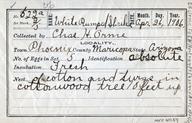 White Rumped Shrike Apr 26, 1886
Collected by Chas H. Orme
LOCALITY.
Phoenix Maricopa Co Arizona
No. of Eggs in Set 5 Identification absolute
Incubation Fresh
Nest of cotton and twigs in
cottonwood tree 8 feet up